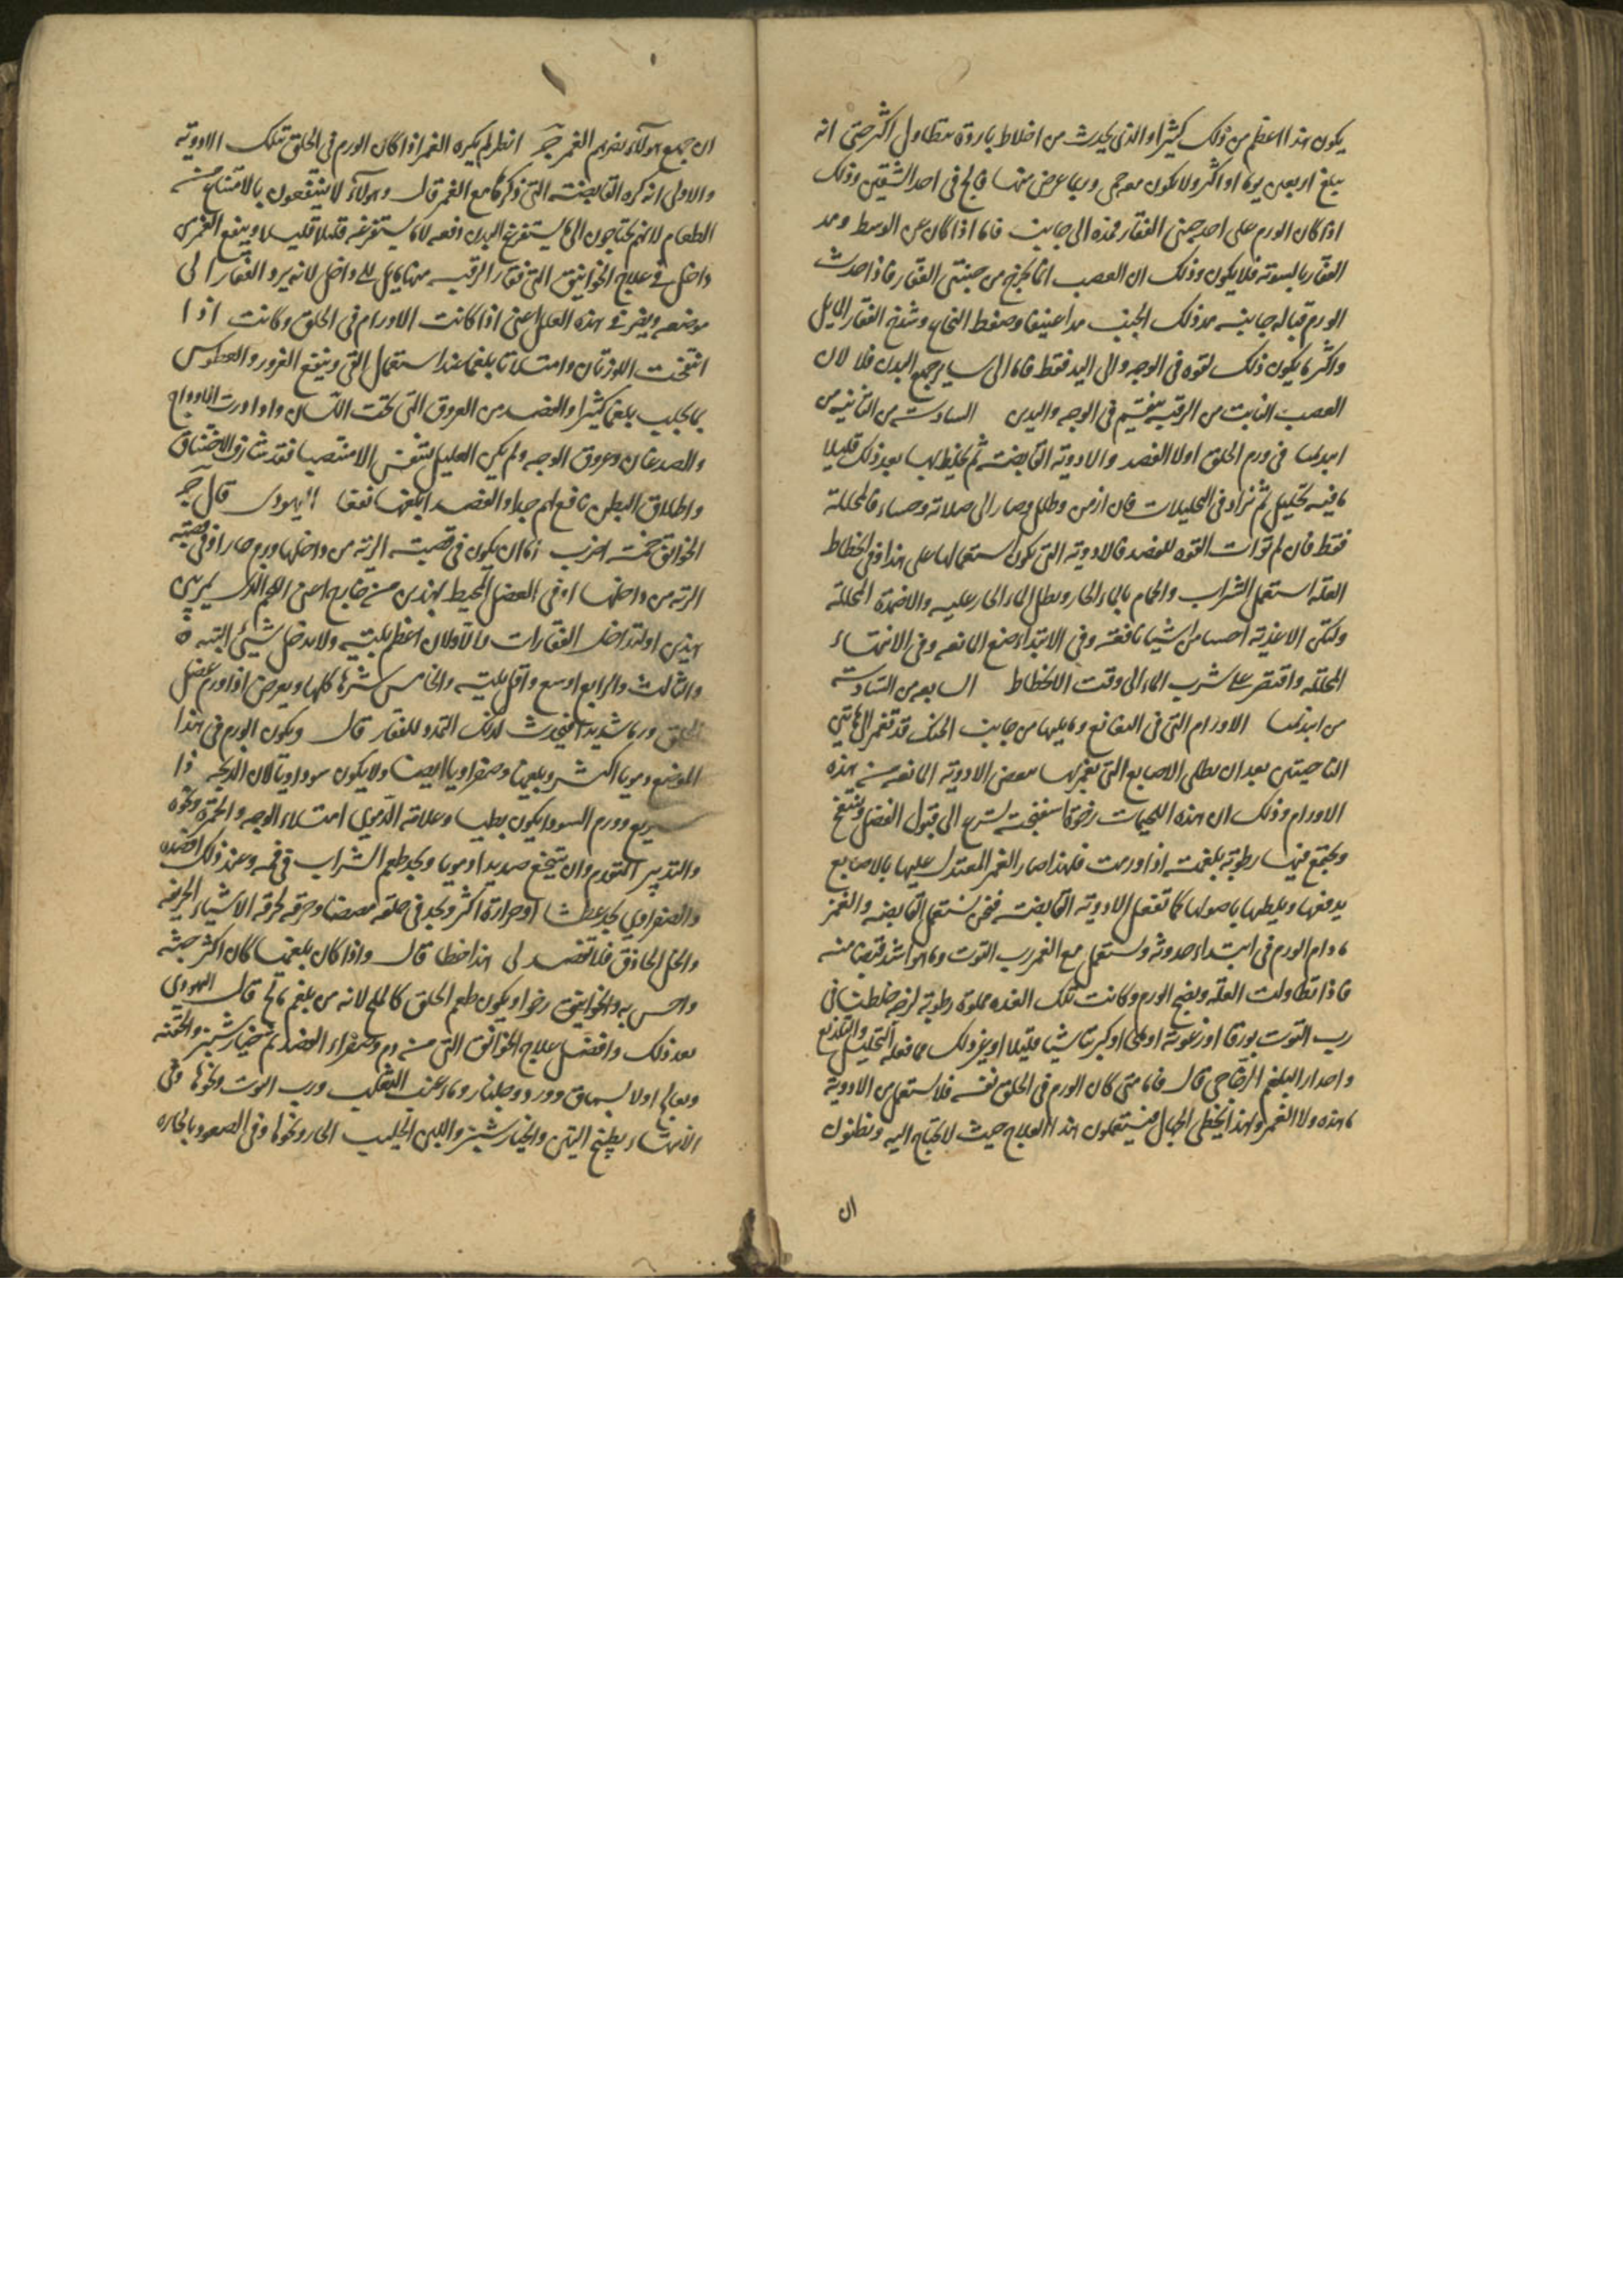 يكون هذا اعظم من ذلك كثيرا والذى يحدث من اخلاط باردة يتطاول اكثر حتى انه
يبلغ اربعين يوما او اكثر ولا يكون معه حمى وربما عرض منها فالج فى احد الشقين وذلك
اذا كان الورم على احد جنبى الفقار فمده الى جانب فاما اذا كان عن الوسط ومد
الفقار بالسوية فلا يكون وذلك ان العصب انما يخرج من جنبتى الفقار فاذا حدث
الورم قبالة جانبه مد ذلك الجنب مدا عنيفا وضغط النخاع وشدخ الفقار المايل
واكثر ما يكون ذلك لقوه فى الوجه والى اليد فقط فاما الى ساير جميع البدن فلا لان
العصب النابت من الرقبة ينقسم فى الوجه واليدين السادسة من الثانية من
ابيذيميا فى ورم الحلق اولا الفصد والادوية القابضة ثم يخلط بها بعد ذلك قليلا
ما فيه تحليل ثم نزاد فى المحللات فان ازمن وطال وصار الى صلابة وجساء فالمحللة
فقط فان لم توات القوه للفصد فالادوية التى يكون استعمالها على هذا وفى انحطاط
العلة استعمل الشراب والحمام بالماء الحار ونطل الماء الحار عليه والاضمدة المحللة
ولتكن الاغذية احساء من اشيا نافعة وفى الابتداء ضع المانعه وفى الانتهاء
المحللة واقتصر على شرب الماء الى وقت الانحطاط السابعه من السادسة
من ابيذيميا الاورام التى فى النغانغ وما يليها من جانب الحنك قد تغمز الى هاتين
الناحيتين بعد ان يطلى الاصابع التى يغمز بها ببعض الادوية المانعه من هذه
الاورام وذلك ان هذه اللحيمات رخوة اسفنجية يسرع الى قبول الفضل وينتفخ
ويجتمع فيها رطوبة بلغمية اذا ورمت فلهذا صار الغمز المعتدل عليها بالاصابع
يدفعها ويلطها باصولها كما تفعل الادوية القابضة فنحن نستعمل القابضه والغمز
ما دام الورم فى ابتداء حدوثه ونستعمل مع الغمز رب التوت وما هو اشد قبضا منه
فاذا تطاولت العلة ونضج الورم وكانت تلك الغدد مملوة رطوبة لزجة خلطنا فى
رب التوت بورقا او رغوته او ملحا او كبريتا شيا قليلا او غير ذلك مما فعله التحليل والتلذيع
واحدار البلغم الزجاجى قال فاما متى كان الورم فى الحلق نفسه فلا تستعمل من الادوية
ما هذه ولا الغمز ولهذا يخطى الجهال فيستعملون هذا العلاج حيث لا يحتاج اليه ويظنون
ان
ان جميع هولاء يضرهم الغمز انظر لم يكره الغمز اذا كان الورم فى الحلق تلك الادوية
والاولى انه كره القابضة التى ذكرها مع الغمز قال وهولاء لا ينتفعون بالامتناع من
الطعام لانهم يحتاجون الى ما يستفرغ البدن دفعه لا ما يستفرغه قليلا قليلا وينفع الغمز من
داخل فى علاج الخوانيق التى فقار الرقبه منها مايل الى داخل لانه يرد الفقار الى
موضعه ويضر فى هذه العلل اعنى اذا كانت الاورام فى الحلق وكانت اذا
انتفخت اللوزتان وامتلاتا بلغما عند استعمال القى وينفع الغرور والعطوس
بما يجلب بلغما كثيرا والفصد من العروق التى تحت اللسان واذا درت الاوداج
والصدغان وعروق الوجه ولم يكن العليل يتنفس الا منتصبا فقد شارف الاختناق
واطلاق البطن نافع لهم جدا والفصد ابلغها نفعا اليهودى قال
الخوانق خمسة اضرب اما ان يكون فى قصبة الرية من داخلها ورم حار او فى قصبة
الرية من داخلها او فى العضل المحيط بهذين من خارج اعنى اللحم الذى يمرّ بين
هذين او لتداخل الفقارات فالاولان اعظم بلية ولا يدخل شئ البته
والثالث والرابع اوسع واقل بلية والخامس شرها كلها ويعرض اذا ورم عضل
الحلق ورما شديدا فيحدث لذلك التمدد للفقار قال ويكون الورم فى هذا
الموضع دمويا اكثر وبلغميا وصفراويا ايضا ولا يكون سوداويا لان الذبحه ذا
سريع وورم السودا يكون بطيا وعلامة الدموى امتلاء الوجه والحمرة ونحوه
والتدبير المتقدم وان يتنخع صديدا دمويا ويجد طعم الشراب فى فمه وعند ذلك افصده
والصفراوى يجد عطشا وحرارة اكثر ويجد فى حلقه مضضا وحرقه كحرقه الاشياء الحريفه
والخل الحاذق فلا تفصد لى هذا خطا قال واذا كان بلغميا كان اكثر جثه
واحس به والخوانيق رخوا ويكون طعم الحلق كالملح لانه من بلغم مالح قال اليهودى
بعد ذلك وافضل علاج الخوانق التى من دم وصفراء الفصد ثم خيار شنبر والحقنه
ويعالج اولا بسماق وورد وجلنار وماء عنب الثعلب ورب التوت ونحوها وفى
الانتهاء بطبيخ التين والخيار شنبر واللبن الحليب الحار ونحوها وفى الصعود بالحاره